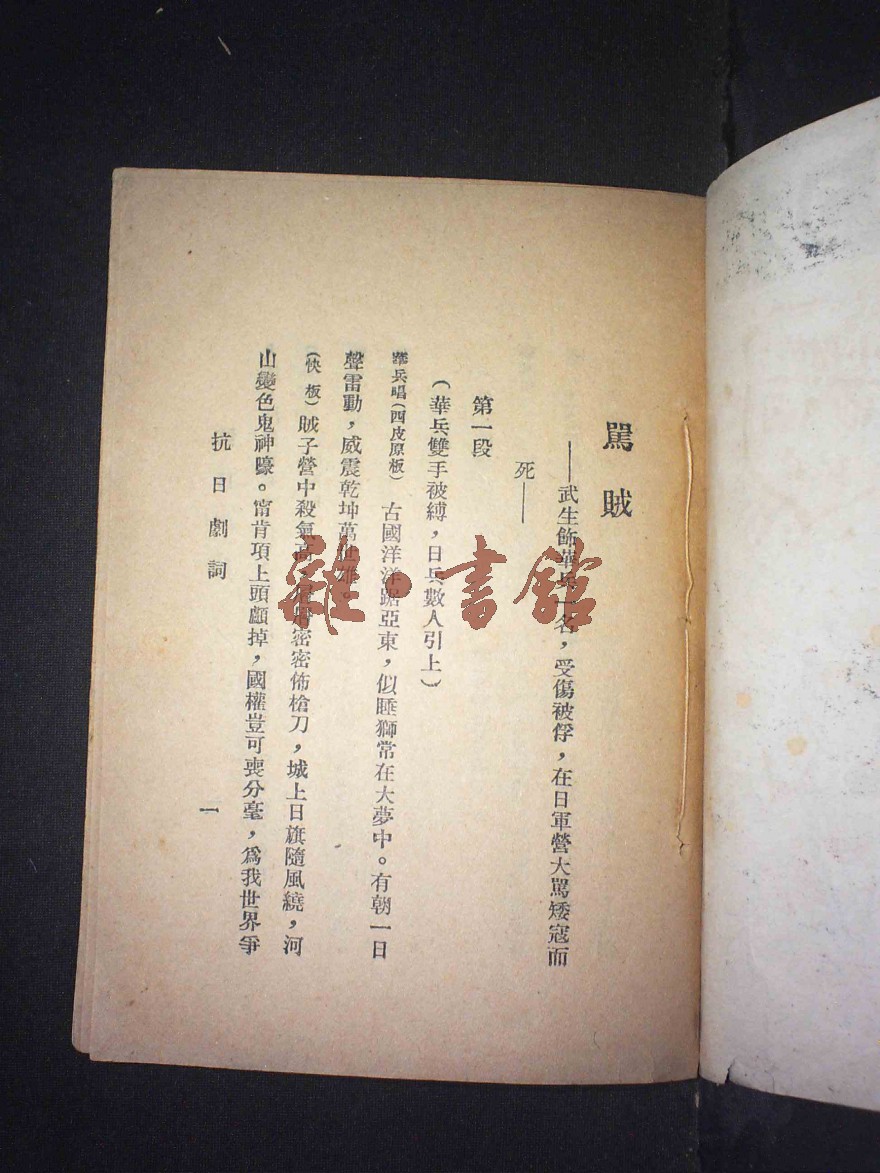 罵賊
——武生飾華兵一名，受傷被俘，在日軍營大罵矮寇而
死——
第一段
（華兵雙手被縛，日兵數人引上）
華兵唱（西皮原板）古國洋洋踞亞東，似睡獅常在大夢中。有朝一日
聲雷動，威震乾坤萬世雄。
（快板）賊子營中殺氣高，層層密密佈槍刀，城上日旗隨風繞，河
山變色鬼神嚎。甯肯項上頭顱掉，國權豈可喪分毫，爲我世界爭
抗日劇詞
一
雜·書館